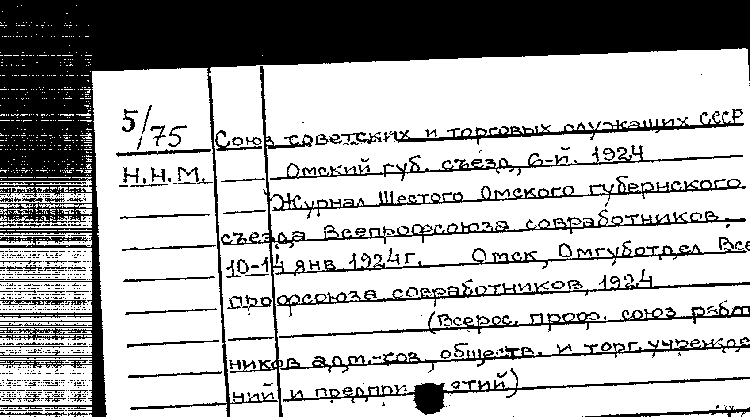 5/75
Союз советских и торговых служащих СССР
Н.Н.М.
Омский губ. съезд, 6-й. 1924
Журнал Шестого Омского губернского
съезда Всепрофсоюза совработников.
10-14 янв 1924г. Омск, Омгуботдел Все
профсоюза совработников, 1924
(Всерос. проф. союз работ
ников адм.-сов, обществ. и торг. учрежде
ний и предприятий)